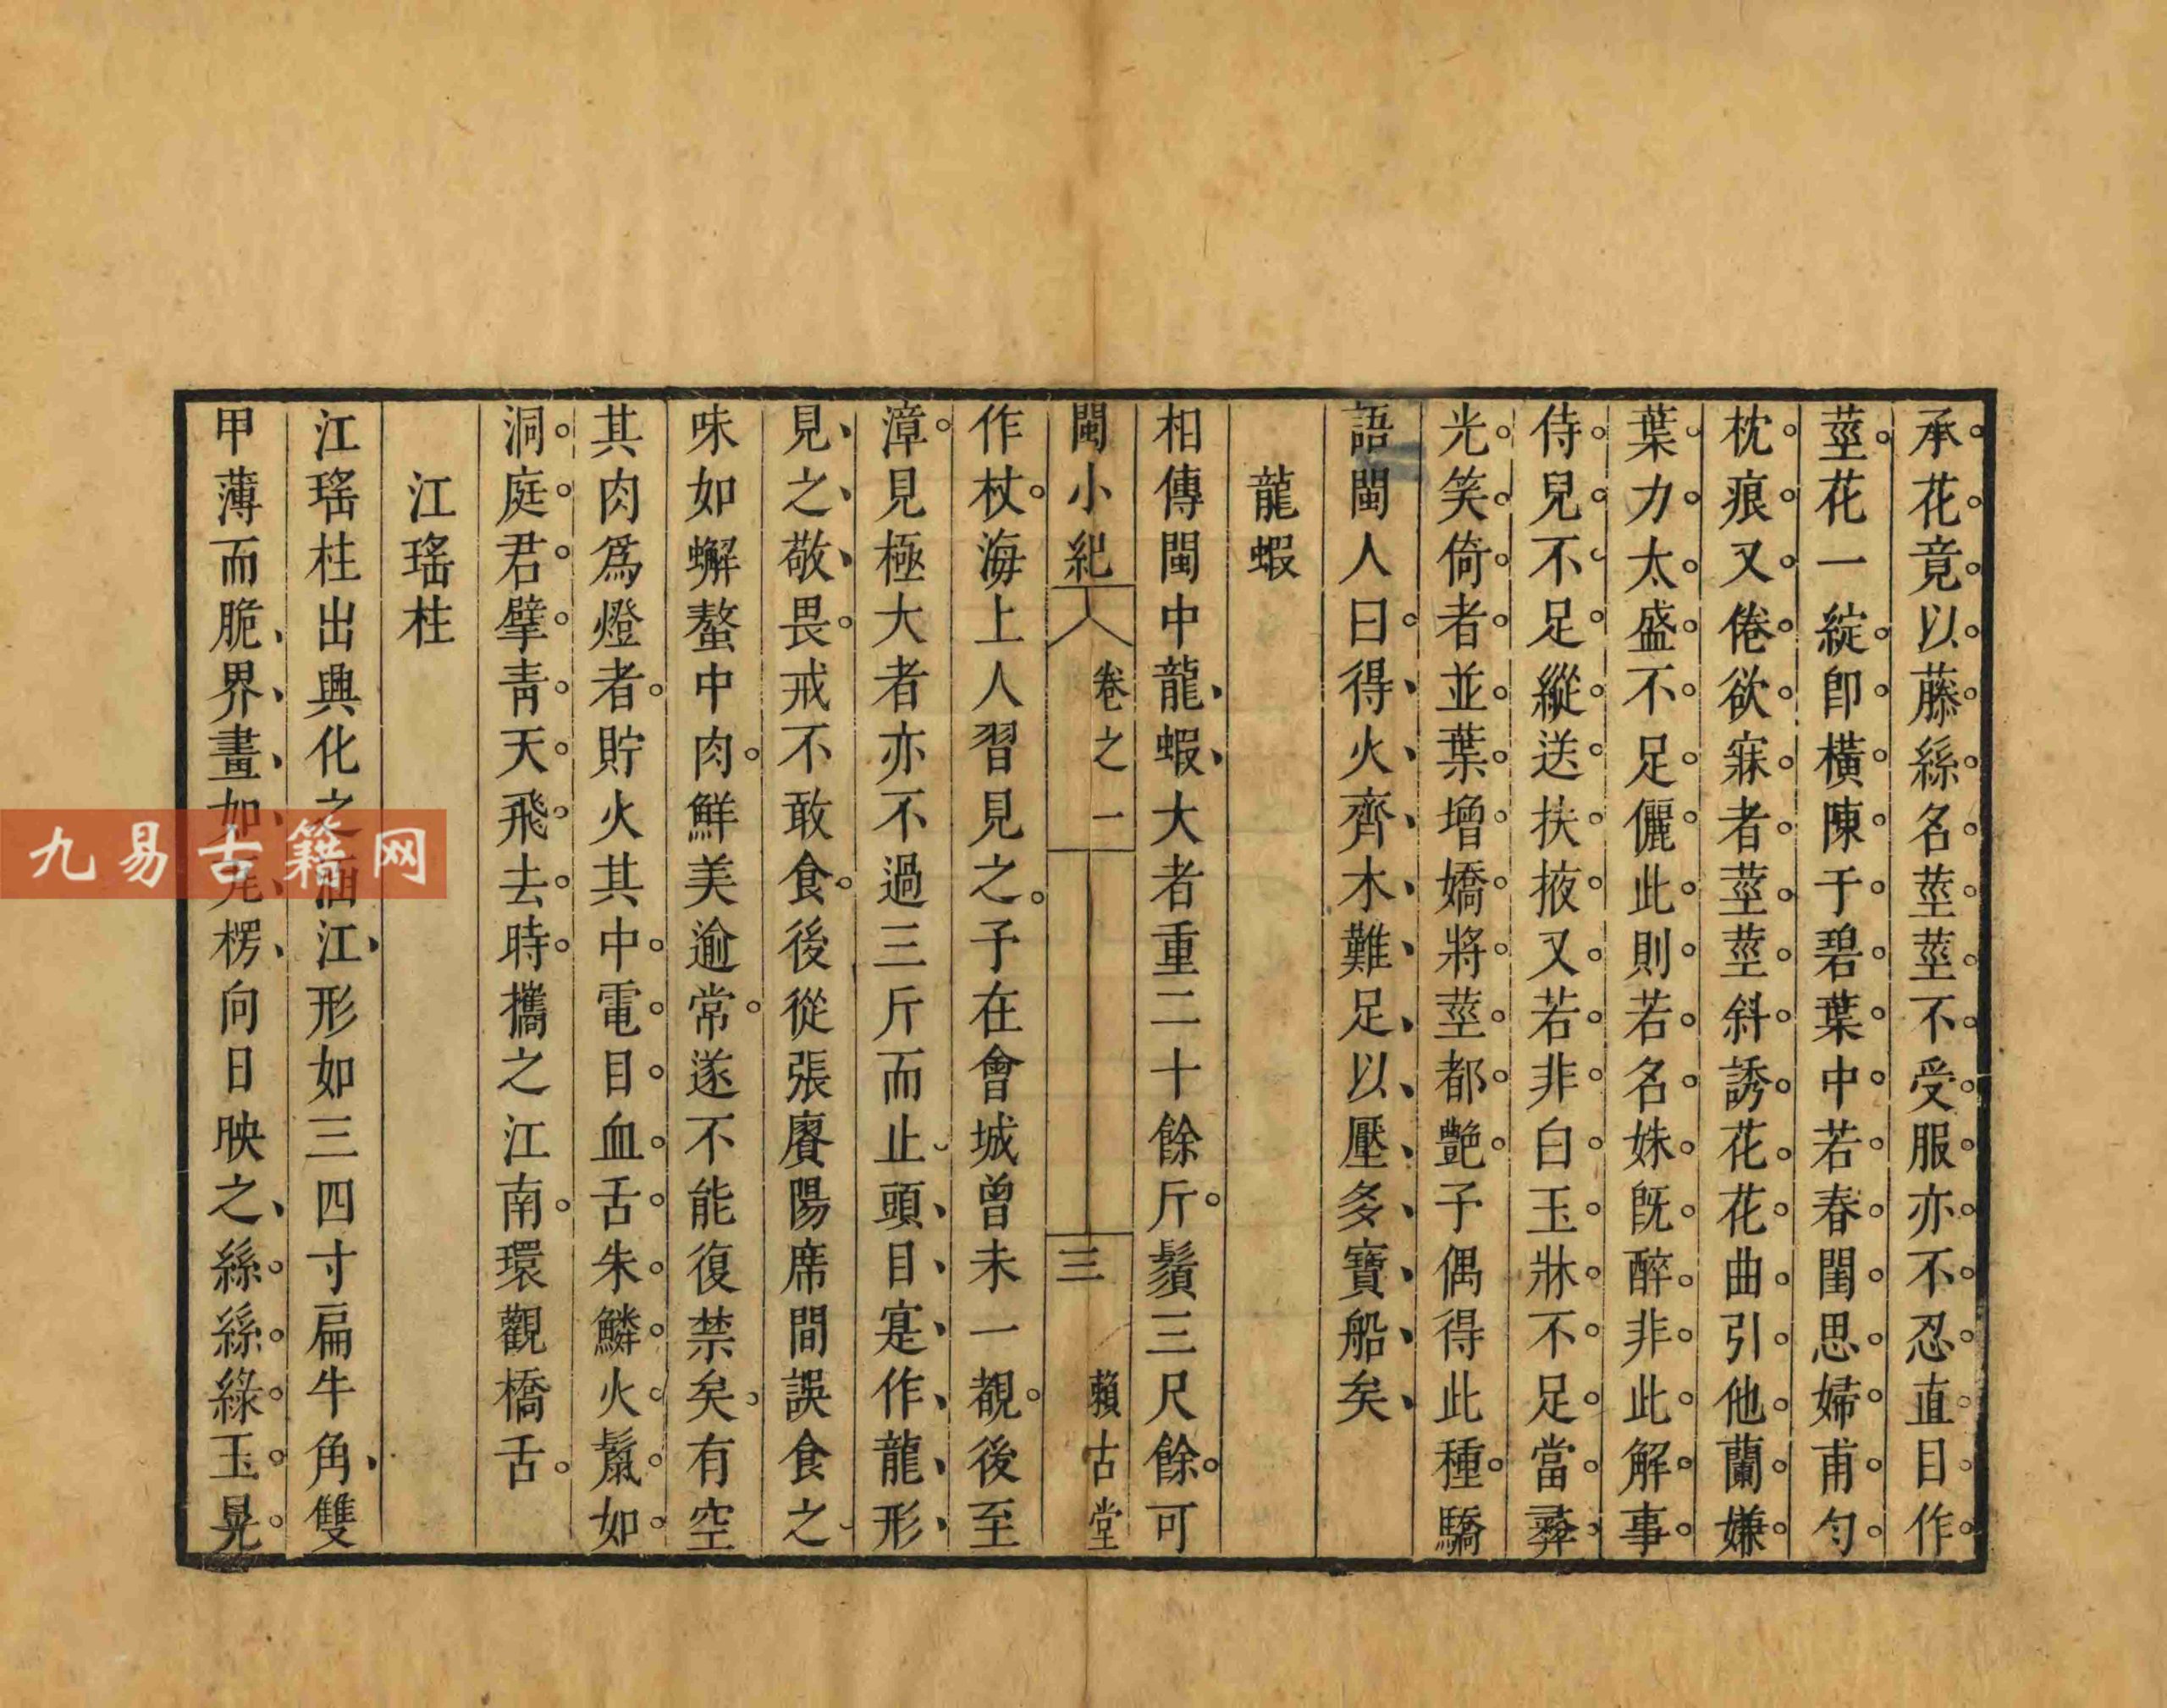 承花竟以藤絲名莖莖不受服亦不忍直目作
莖花一綻卽橫陳于碧葉中若春閨思婦甫勻
枕痕又倦欲寐者莖莖斜誘花花曲引他蘭嫌
葉力太盛不足儷此則若名姝旣醉非此解事
侍兒不足縱送扶掖又若非白玉牀不足當彛
光笑倚者並葉增嬌將莖都艶子偶得此種驕
語閩人曰得火齊木難足以壓多寶船矣
龍蝦
相傳閩中龍蝦大者重二十餘斤鬚三尺餘可
閩小紀
卷之一
三
賴古堂
作杖海上人習見之予在會城曾未一覩後至
漳見極大者亦不過三斤而止頭目寔作龍形
見之敬畏戒不敢食後從張賡陽席間誤食之
味如蠏螯中肉鮮美逾常遂不能復禁矣有空
其肉爲燈者貯火其中電目血舌朱鱗火鬣如
洞庭君擘靑天飛去時攜之江南環觀橋舌
江瑤柱
江瑤柱出興化之涵江形如三四寸扁牛角雙
甲薄而脆界畫如瓦楞向日映之絲絲綠玉晃
九易古籍网